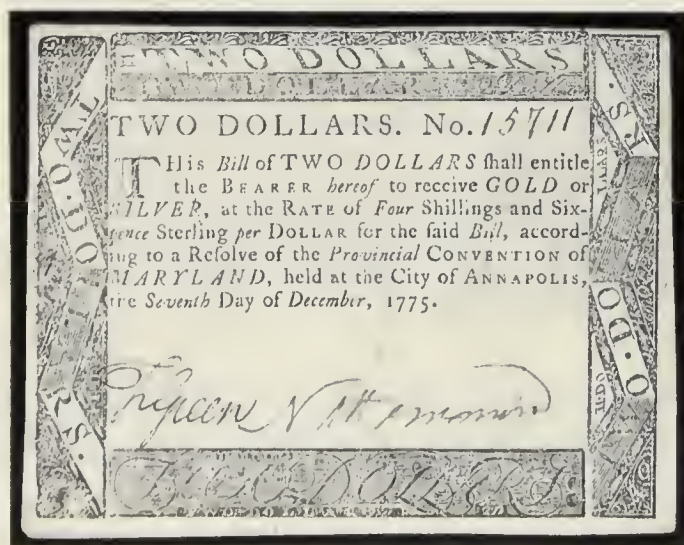 TWO DOLLARS
TWO DOLLARS. No. 15711
THis Bill of TWO DOLLARS ſhall entitle
the BEARER hereof to receive GOLD or
SILVER, at the RATE of Four Shillings and Six-
pence Sterling per DOLLAR for the ſaid Bill, accord-
ing to a Reſolve of the Provincial CONVENTION of
MARYLAND, held at the City of ANNAPOLIS,
the Seventh Day of December, 1775.
TWO DOLLARS
TWO·DO
RS.
RS.
O·DO